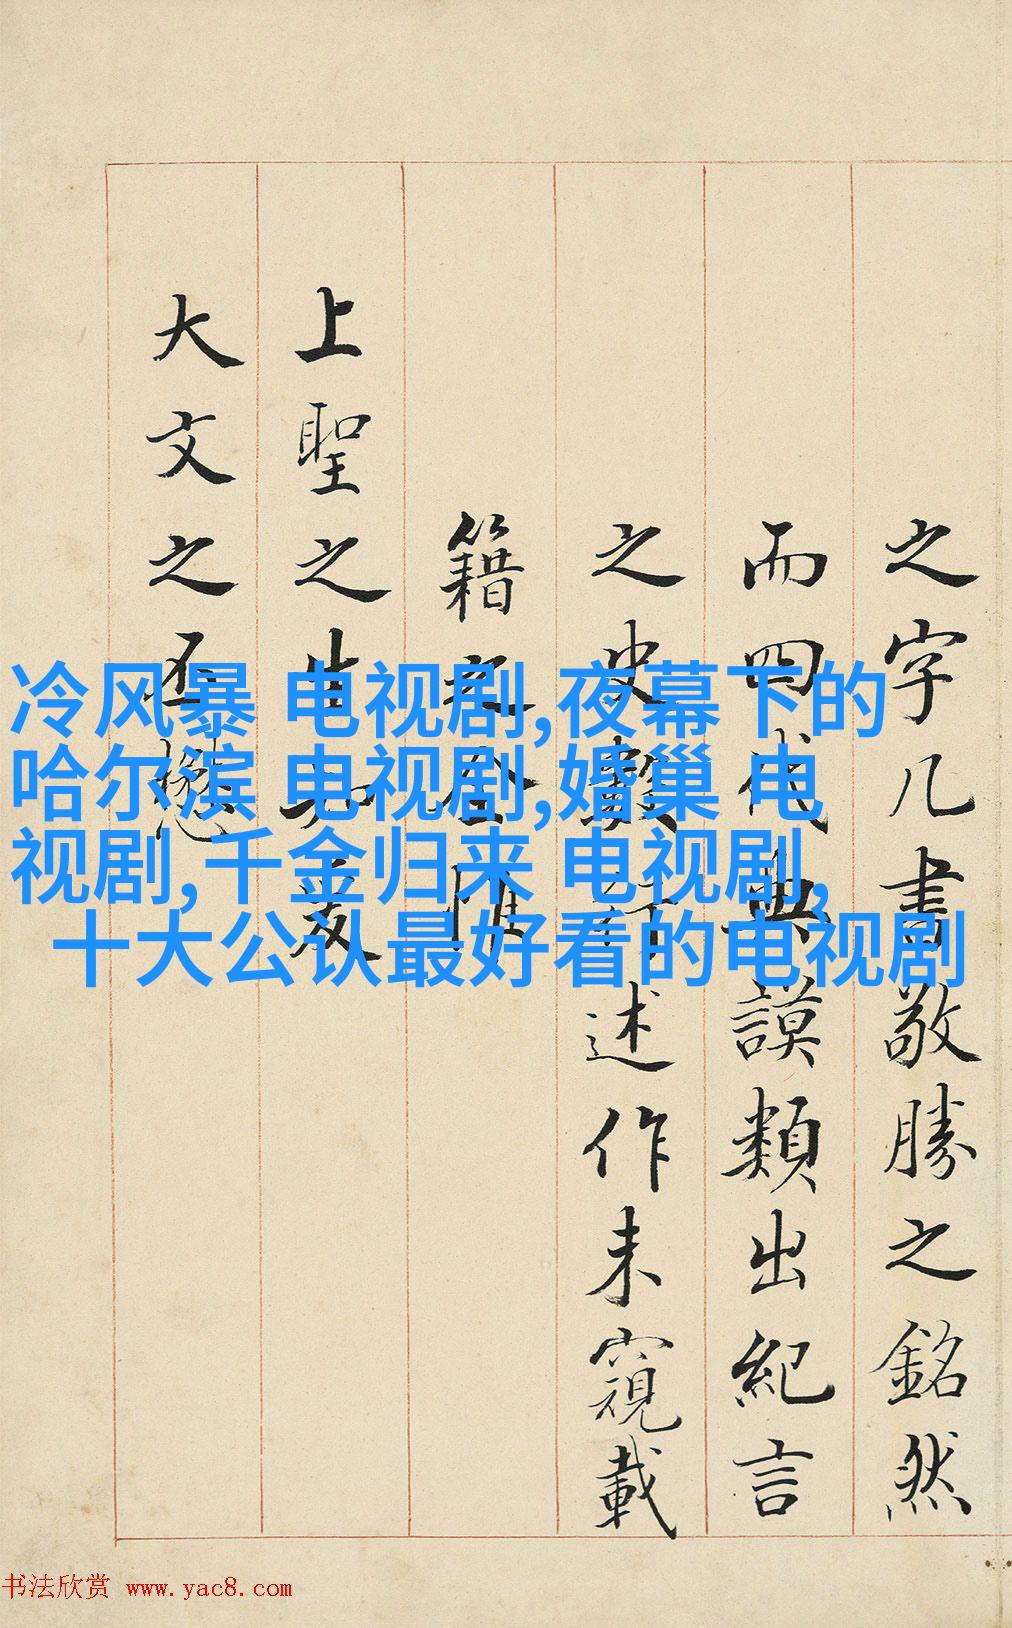 之字几書敬勝之銘然
而四代典謨類出紀言
之史述作未窺載
籍之全惟
上聖之生知爰
大文之丕懋
冷风暴 电视剧,夜幕下的
哈尔滨 电视剧,婚巢 电
视剧,千金归来 电视剧,
十大公认最好看的电视剧
书法欣赏 www.yac8.com